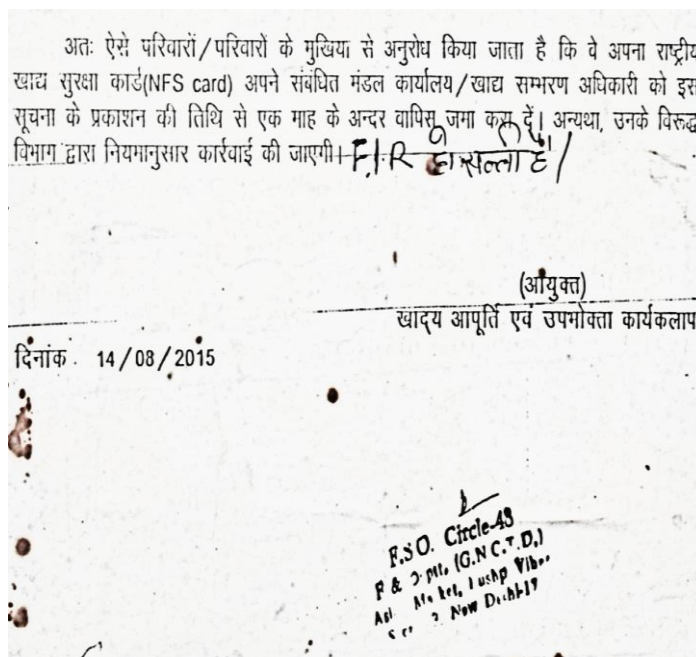 अतः ऐसे परिवारों/परिवारों के मुखिया से अनुरोध किया जाता है कि वे अपना राष्ट्रीय
खाद्य सुरक्षा कार्ड(NFS card) अपने संबंधित मंडल कार्यालय/खाद्य सम्भरण अधिकारी को इस
सूचना के प्रकाशन की तिथि से एक माह के अन्दर वापिस जमा करा दें। अन्यथा, उनके विरूद्ध
विभाग द्वारा नियमानुसार कार्रवाई की जाएगी। F.I.R
(आयुक्त)
खाद्य आपूर्ति एवं उपभोक्ता कार्यकलाप
दिनांक 14/08/2015
F.S.O. Circle-43
F & (G.N.C.T.D.)
New Delhi-17